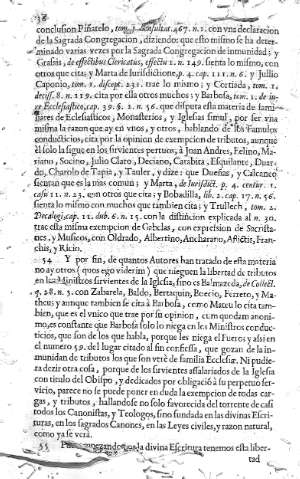 36
conclusion Piñatelo, tom. 1. consultat. 467. n. 1. con vna declaracion
de la Sagrada Congregacion, diziendo: que esto mismo se ha determinado
varias vezes por la Sagrada Congregacion de inmunidad; y
Grasis, de effectibus Clericatus, effectu 1. n. 149. siente lo mismo, con
otros que cita; y Marta de Iurisdictione, p. 4. cap. 111. n. 6. y Iulio
Caponio, tom. 2. discept. 231. trae lo mismo; y Cortiada, tom. 1.
decis. 8. n. 119. cita por ella otros muchos; y Barbosa, tom. 1. de iure
Ecclesiastico, cap. 39. §. 2. n. 56. que disputa esta materia de familiares
de Eclesiasticos, Monasterios, y Iglesias simul, por ser vna
misma la razon que ay en vnos, y otros, hablando de los Famulos
conducticios, cita por la opinion de exempcion de tributos, aunque
èl solo la sigue en los sirvientes pertuos; à Ioan Andres, Felino, Mariano,
Socino, Iulio Claro, Deciano, Carabita, Esquilante, Duardo,
Charolo de Tapia, y Tauler, y dize: que Dueñas, y Calcaneo
sientan que es la mas comun; y Marta, de Iurisdict. p. 4. centur. 1.
casu 11. n. 25. con otros que cita; y Bobadilla, lib. 2. cap. 17. n. 56.
siente lo mismo con muchos que tambien cita; y Trullench, tom. 2.
Decalogi, cap. 11. dub. 6. n. 15. con la distincion explicada al n. 30.
trae esta misma exempcion de Gebelas, con expression de Sacristanes,
y Musicos, con Oldrado, Albertino, Ancharano, Aflictis, Franchis,
y Ricio.
54 Y por fin, de quantos Autores han tratado de esta materia
no ay otros (quos ego viderim) que nieguen la libertad de tributos
en los Ministros sirvientes de la Iglesia, sino es Balmaseda, de Collect.
q. 28. n. 5. con Zabarela, Baldo, Bertaquin, Boecio, Ferreto, y Matheus
y aunque tambien se cita à Barbosa, como Mateu lo cita tambien,
que es el vnico que trae por su opinion, cum quodam anonimo,
es constante que Barbosa solo lo niega en los Ministros conducticios,
que son de los que habla, porque les niega el Fuero; y assi en
el numero 59. del lugar citado al fin confiessa, que gozan de la inmunidad
de tributos los que son verè de familia Ecclesiæ. Ni pudiera
dezir otra cosa, porque de los sirvientes assalariados de la Iglesia
con titulo del Obispo, y dedicados por obligaciõ à su perpetuo servicio,
parece no se puede poner en duda la exempcion de todas cargas,
y tributos, hallandose no solo favorecida del torrente de casi
todos los Canonistas, y Teologos, sino fundada en las divinas Escrituras,
en los sagrados Canones, en las Leyes civiles, y razon natural,
como ya se verà.
55 la divina Escritura tenemos esta libertad